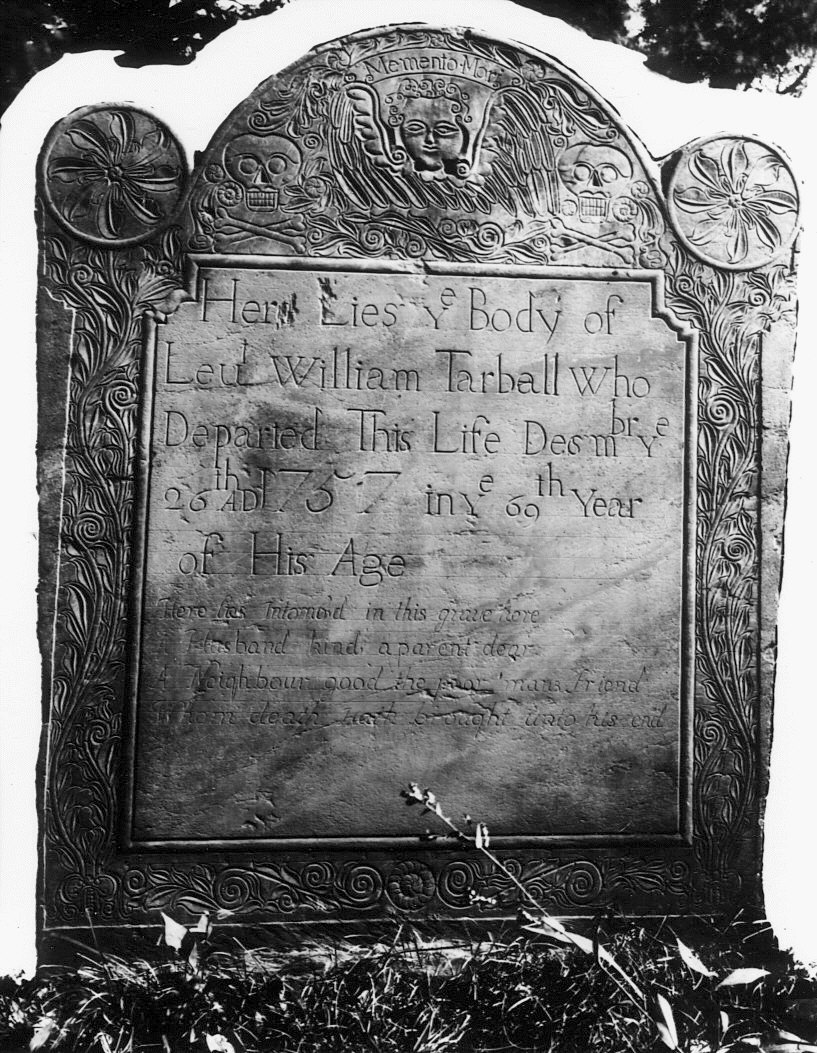 Memento·Mori
Here Lies yᵉ Body of
Leuᵗ William Tarball Who
Departed This Life Desmᵇʳ yᵉ
26ᵗʰ AD 1757 in yᵉ 69ᵗʰ Year
of His Age
Here lies in this grave here
Husband kind a parent dear
A Neighbour good the poor mans friend
Whom death hath brought unto his end